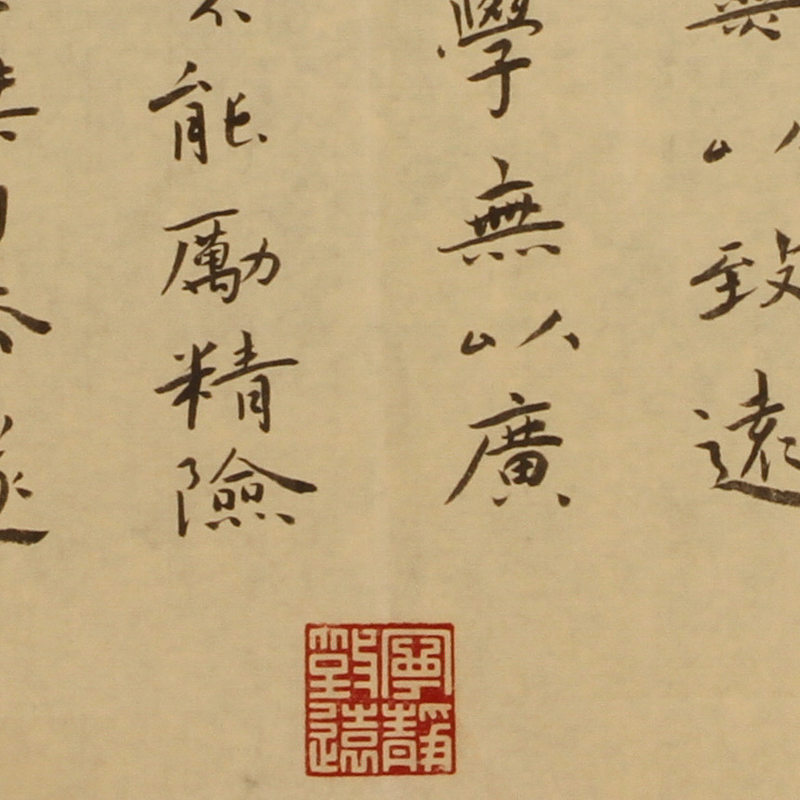 無以致遠
學無以廣
不能勵精險
遂
寧靜致遠